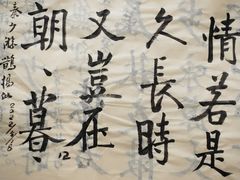 情若是
久長時
又豈在
朝、暮、
秦少游鵲橋仙